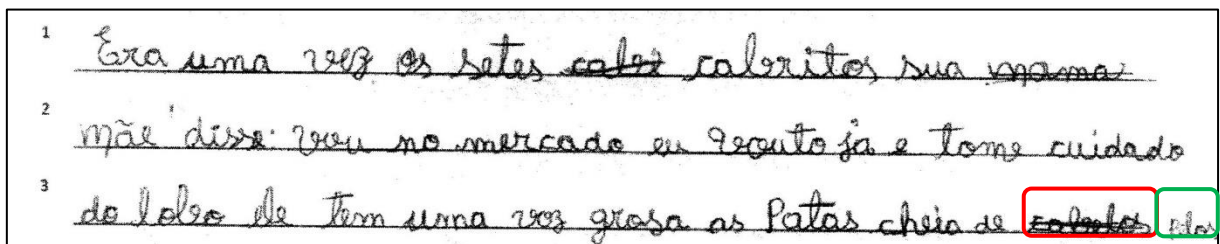 1 Era uma vez os setes cabritos sua mama
2 mãe disse: vou no mercado eu vouto já e tome cuidado
3 do lobo ele tem uma voz grosa as Patas cheia de cabelos pelos